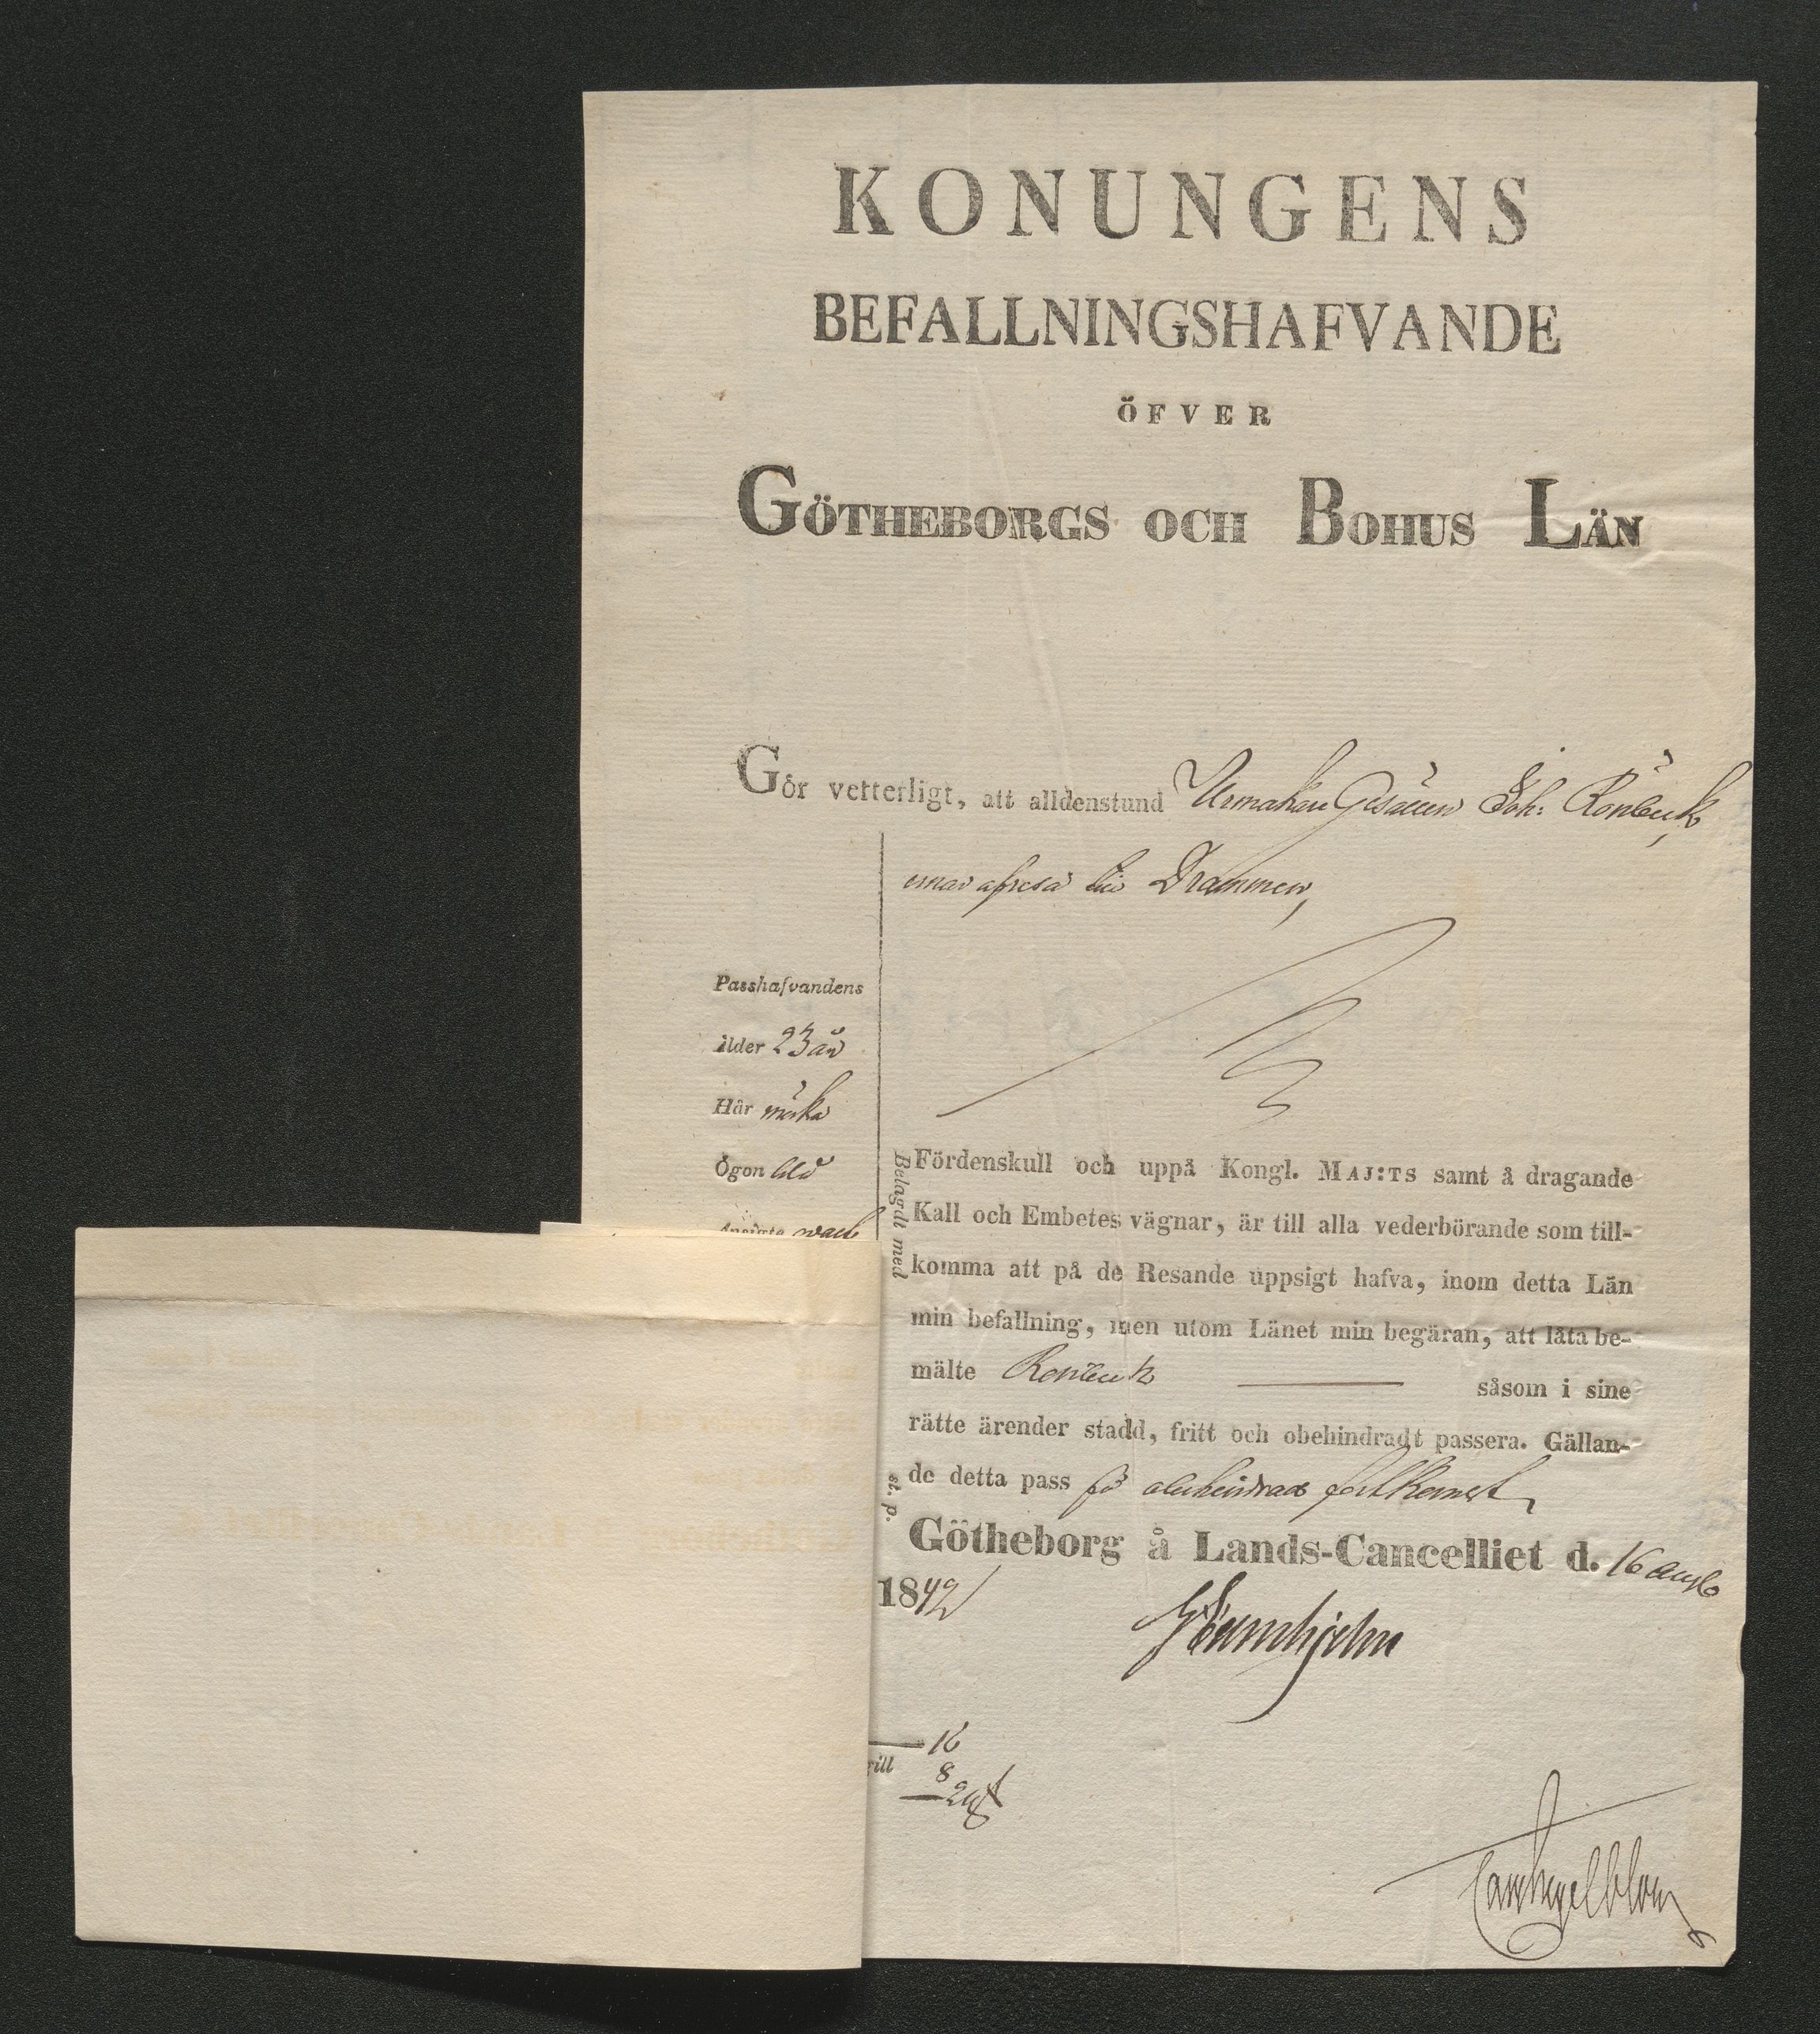 KONUNGENS
BEFALLNINGSHAFVANDE
ÖFVER
GÖTHEBORGS OCH BOHUS LÄN
Gör vetterligt, att alldenstund Urmakare Gesällen Joh: Rönbeck,
ernar afresa till Drammen,
Passhafvandens
ålder 23 år
Hår mörka
Ögon blå
Belagdt med
Fördenskull och uppå Kongl. MAJ:TS samt å dragande
Kall och Embetes vägnar, är till alla vederbörande som till-
komma att på de Resande uppsigt hafva, inom detta Län
min befallning, men utom Länet min begäran, att låta be-
mälte Rönbeck såsom i sine
rätte ärender stadd, fritt och obehindradt passera. Gällan-
de detta pass för obehindrad fortkomst,
st. p.
Götheborg å Lands-Cancelliet d. 16 Aug
1842
16
rill 8
24